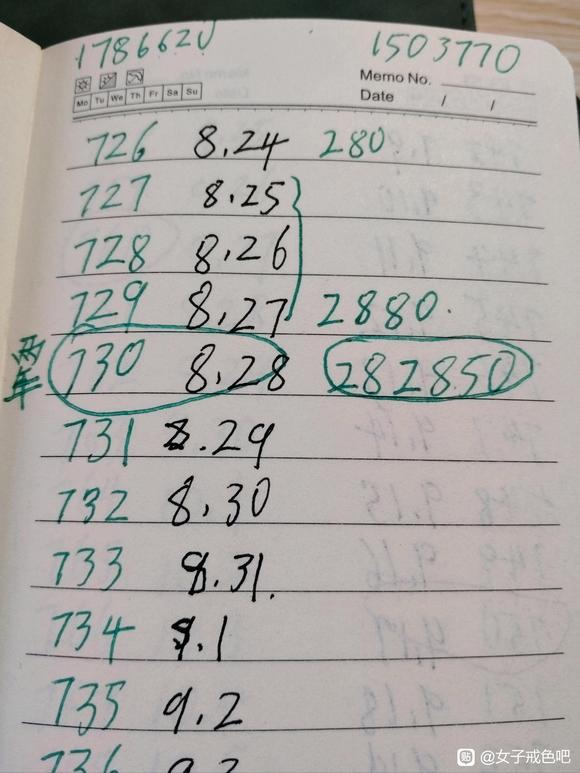 1786620 1503770
Memo No.
Mo Tu We Th Fr Sa Su
Date / /
726 8.24 280
727 8.25
728 8.26
729 8.27 2880.
两年 730 8.28 282850
731 8.29
732 8.30
733 8.31.
734 9.1
735 9.2
736 9.3
贴 @女子戒色吧